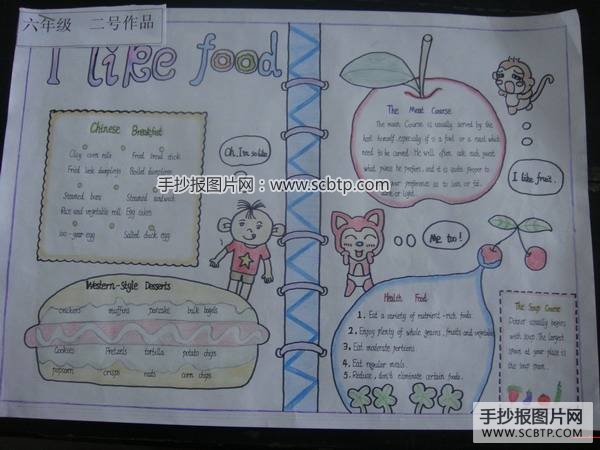 六年级 二号作品
I like food
Chinese Breakfast
Clay oven rolls Fried bread stick
Fried leek dumplings Boiled dumplings
Steamed buns Steamed sandwich
Rice and vegetable roll Egg cakes
100-year egg Salted duck egg
Oh, I'm so
The Meat Course
The main Course is usually served by the
host himself especially if is a fowl or a roast which
need to be carved. He will often ask each guest
what piece he prefers, and it is quite proper to
your preference as to lean or fat,
dark or light.
I like fruit.
Me too!
手抄报图片网:www.scbtp.com
Western-Style Desserts
crackers muffins pancake bagels
Cookies Pretzels tortilla potato chips
popcorn crisps nuts corn chips
Health Food
1. Eat a variety of nutrient-rich foods.
2. Enjoy plenty of whole grains, fruits and vegetables
3. Eat moderate portions.
4. Eat regular meals.
5. Reduce, don't eliminate certain foods.
The Soup Course
Dinner usually begins
with soup. The largest
spoon at your place is
the soup spoon.
手抄报图片网
WWW.SCBTP.COM